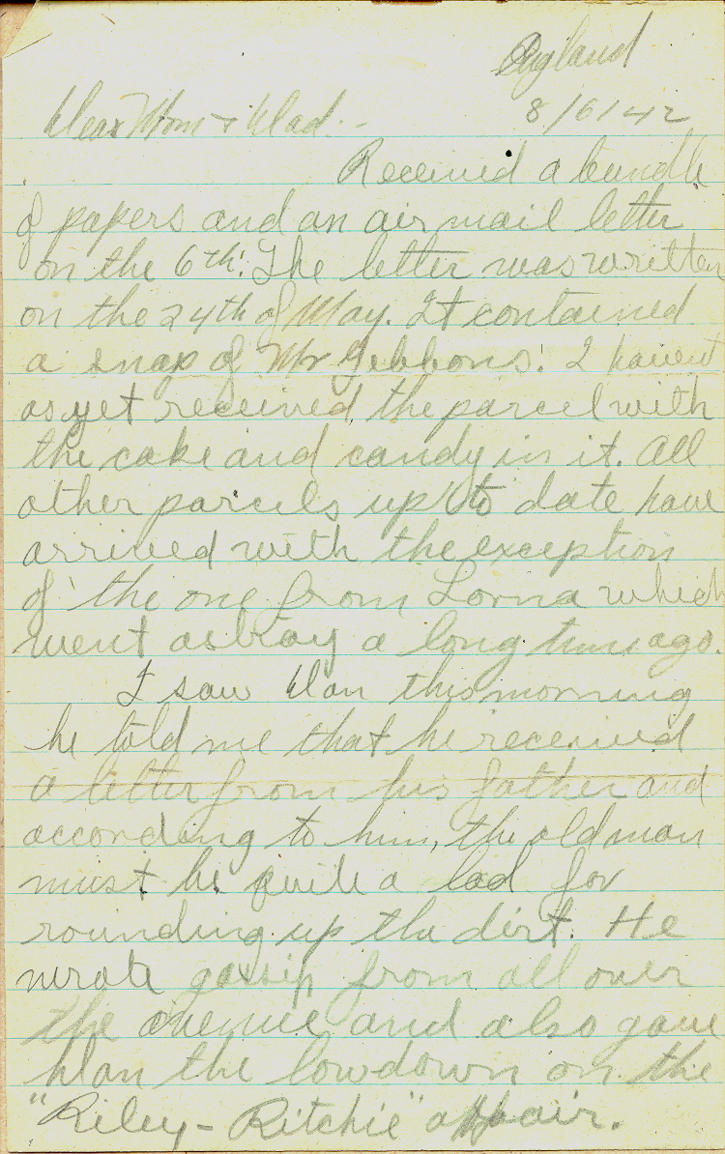 England
8/6/42
Dear Mom & Dad. -
Received a bundle
of papers and an air mail letter
on the 6th. The letter was written
on the 24th of May. It contained
a snap of Mr Gibbons. I havent
as yet received the parcel with
the cake and candy in it. All
other parcels up to date have
arrived with the exception
of the one from Lorna which
went astray a long time ago.
I saw Dan this morning
he told me that he received
a letter from his father and
according to him, the old man
must be quite a lad for
rounding up the dirt. He
wrote gossip from all over
the avenue and also gave
Dan the lowdown on the
"Riley - Ritchie" affair.